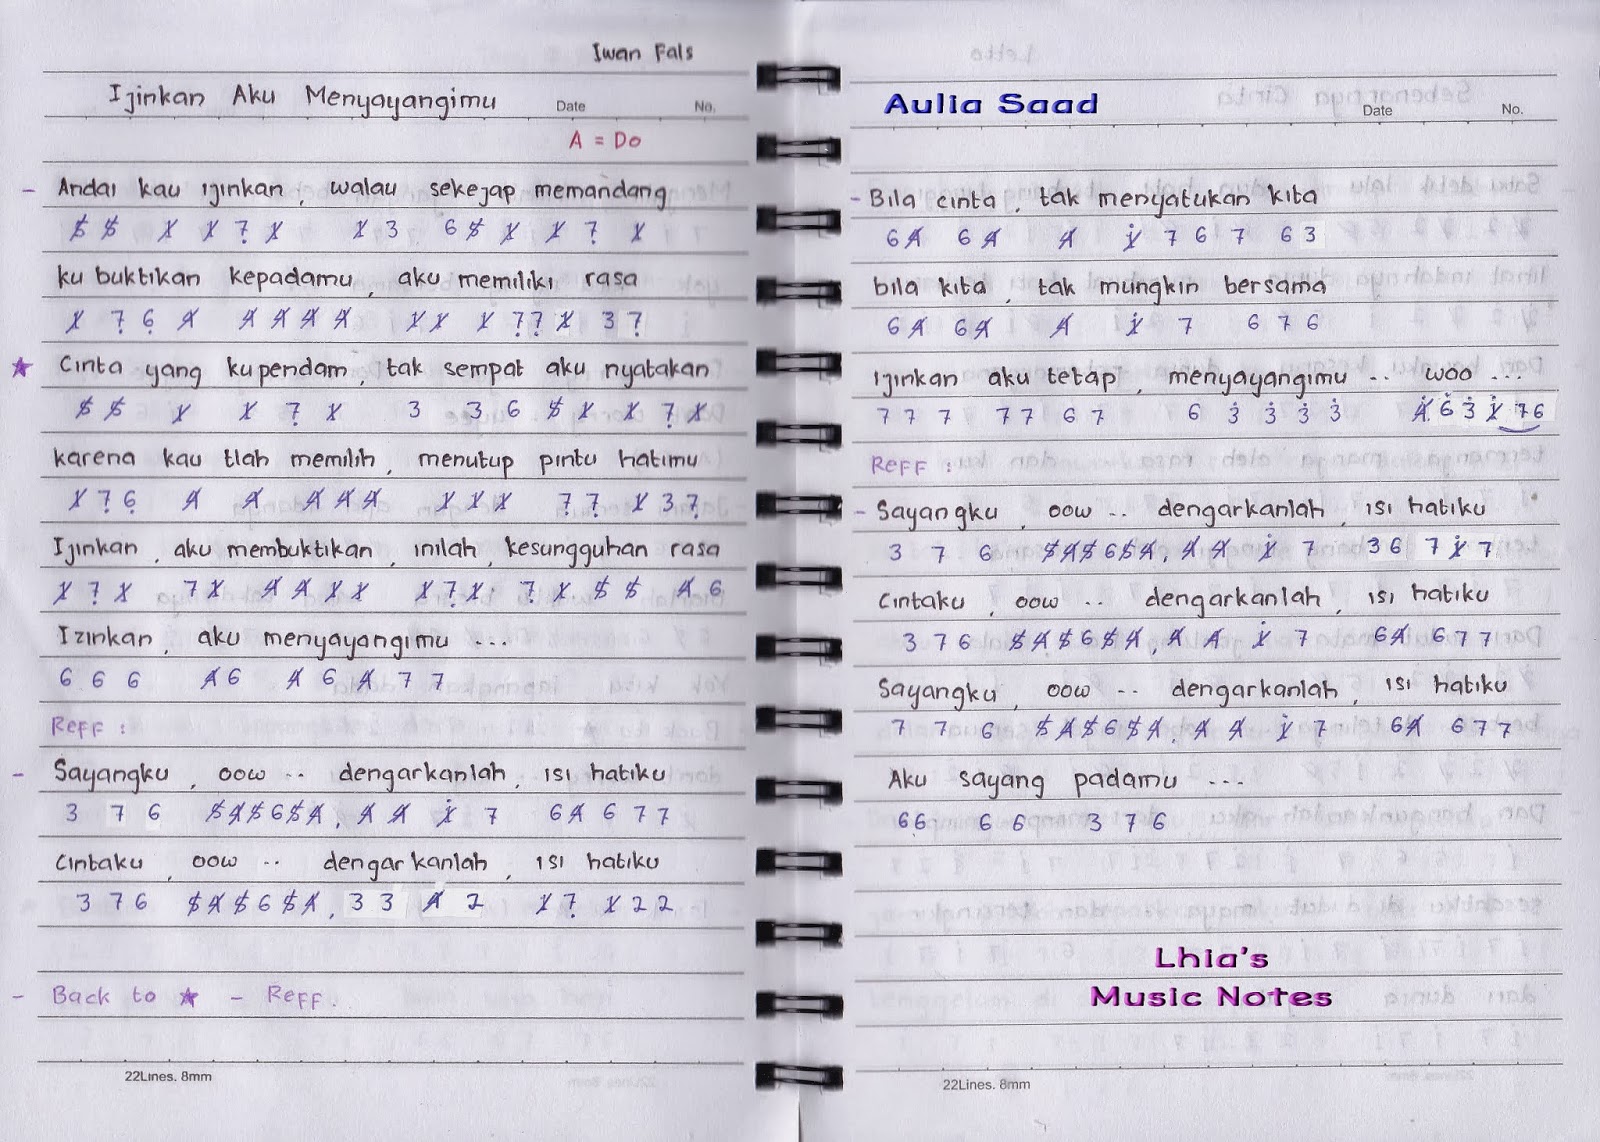 Iwan Fals
Ijinkan Aku Menyayangimu
Date No.
A = Do
- Andai kau ijinkan, walau sekejap memandang
5̸ 5̸ 1̸ 1̸ 7̣ 1̸ 1̸ 3 6 5̸ 1̸ 1̸ 7̣ 1̸
ku buktikan kepadamu, aku memiliki rasa
1̸ 7̣ 6̣ 4̸ 4̸ 4̸ 4̸ 4̸ 1̸ 1̸ 1̸ 7̣ 7̣ 1̸ 3 7̣
★ Cinta yang kupendam, tak sempat aku nyatakan
5̸ 5̸ 1̸ 1̸ 7̣ 1̸ 3 3 6 5̸ 1̸ 1̸ 7̣ 1̸
karena kau tlah memilih, menutup pintu hatimu
1̸ 7̣ 6̣ 4̸ 4̸ 4̸ 4̸ 4̸ 1̸ 1̸ 1̸ 7̣ 7̣ 1̸ 3 7̣
Ijinkan, aku membuktikan, inilah, kesungguhan rasa
1̸ 7̣ 1̸ 7 1̸ 4̸ 4̸ 1̸ 1̸ 1̸ 7̣ 1̸ 7̣ 1̸ 5̸ 5̸ 4̸ 6
Izinkan, aku menyayangimu ...
6 6 6 4̸ 6 4̸ 6 4̸ 7 7
Reff :
- Sayangku, oow .. dengarkanlah, isi hatiku
3 7 6 5̸ 4̸ 5̸ 6 5̸ 4̸, 4̸ 4̸ 1̸̇ 7 6 4̸ 6 7 7
Cintaku, oow .. dengarkanlah, isi hatiku
3 7 6 5̸ 4̸ 5̸ 6 5̸ 4̸, 3 3 4̸ 2 1̸ 7̣ 1̸ 2 2
- Back to ★ - Reff.
22Lines. 8mm
Aulia Saad
Date No.
- Bila cinta, tak menyatukan kita
6 4̸ 6 4̸ 4̸ 1̸̇ 7 6 7 6 3
bila kita, tak mungkin bersama
6 4̸ 6 4̸ 4̸ 1̸̇ 7 6 7 6
Ijinkan aku tetap, menyayangimu .. woo ...
7 7 7 7 7 6 7 6 3̇ 3̇ 3̇ 3̇ 4̸̇ 6̇ 3̇ 1̸̇ 7 6
Reff :
- Sayangku, oow .. dengarkanlah, isi hatiku
3 7 6 5̸ 4̸ 5̸ 6 5̸ 4̸, 4̸ 4̸ 1̸̇ 7 3 6 7 1̸̇ 7
Cintaku, oow .. dengarkanlah, isi hatiku
3 7 6 5̸ 4̸ 5̸ 6 5̸ 4̸, 4̸ 4̸ 1̸̇ 7 6 4̸ 6 7 7
Sayangku, oow .. dengarkanlah, isi hatiku
7 7 6 5̸ 4̸ 5̸ 6 5̸ 4̸, 4̸ 4̸ 1̸̇ 7 6 4̸ 6 7 7
Aku sayang padamu ...
6 6 6 6 3 7 6
Lhia's
Music Notes
22Lines. 8mm